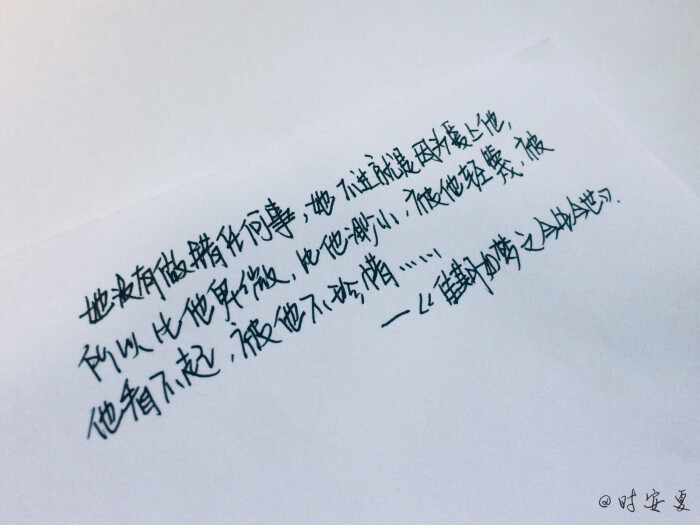 她没有做错任何事，她不过就是因为爱上他，
所以比他卑微，比他渺小，被他轻蔑，被
他看不起，被他不珍惜……
—《佳期如梦之今生今世》.
@时安夏